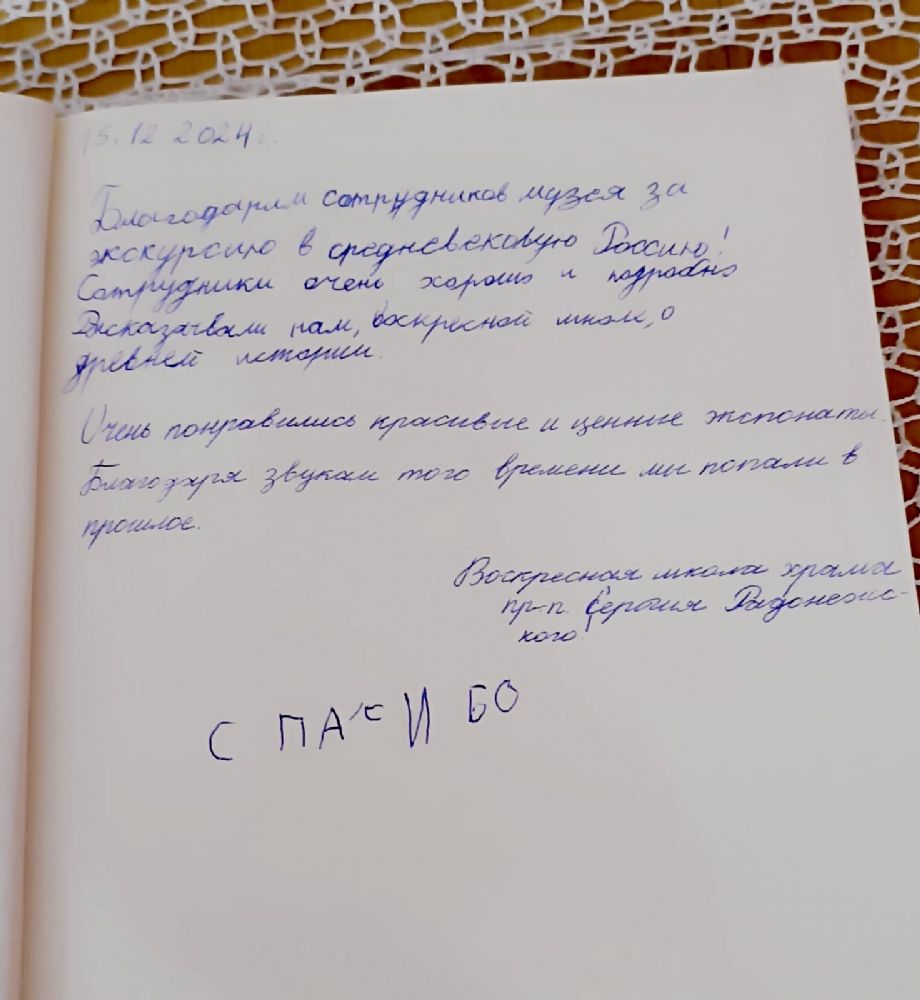 15.12 2024г.
Благодарим сотрудников музея за
экскурсию в средневековую Россию!
Сотрудники очень хорошо и подробно
Рассказывали нам, воскресной школе, о
древней истории.
Очень понравились красивые и ценные экспонаты.
Благодаря звукам того времени мы попали в
прошлое.
Воскресная школа храма
пр-п. Сергия Радонежс-
кого!
СПАСИБО